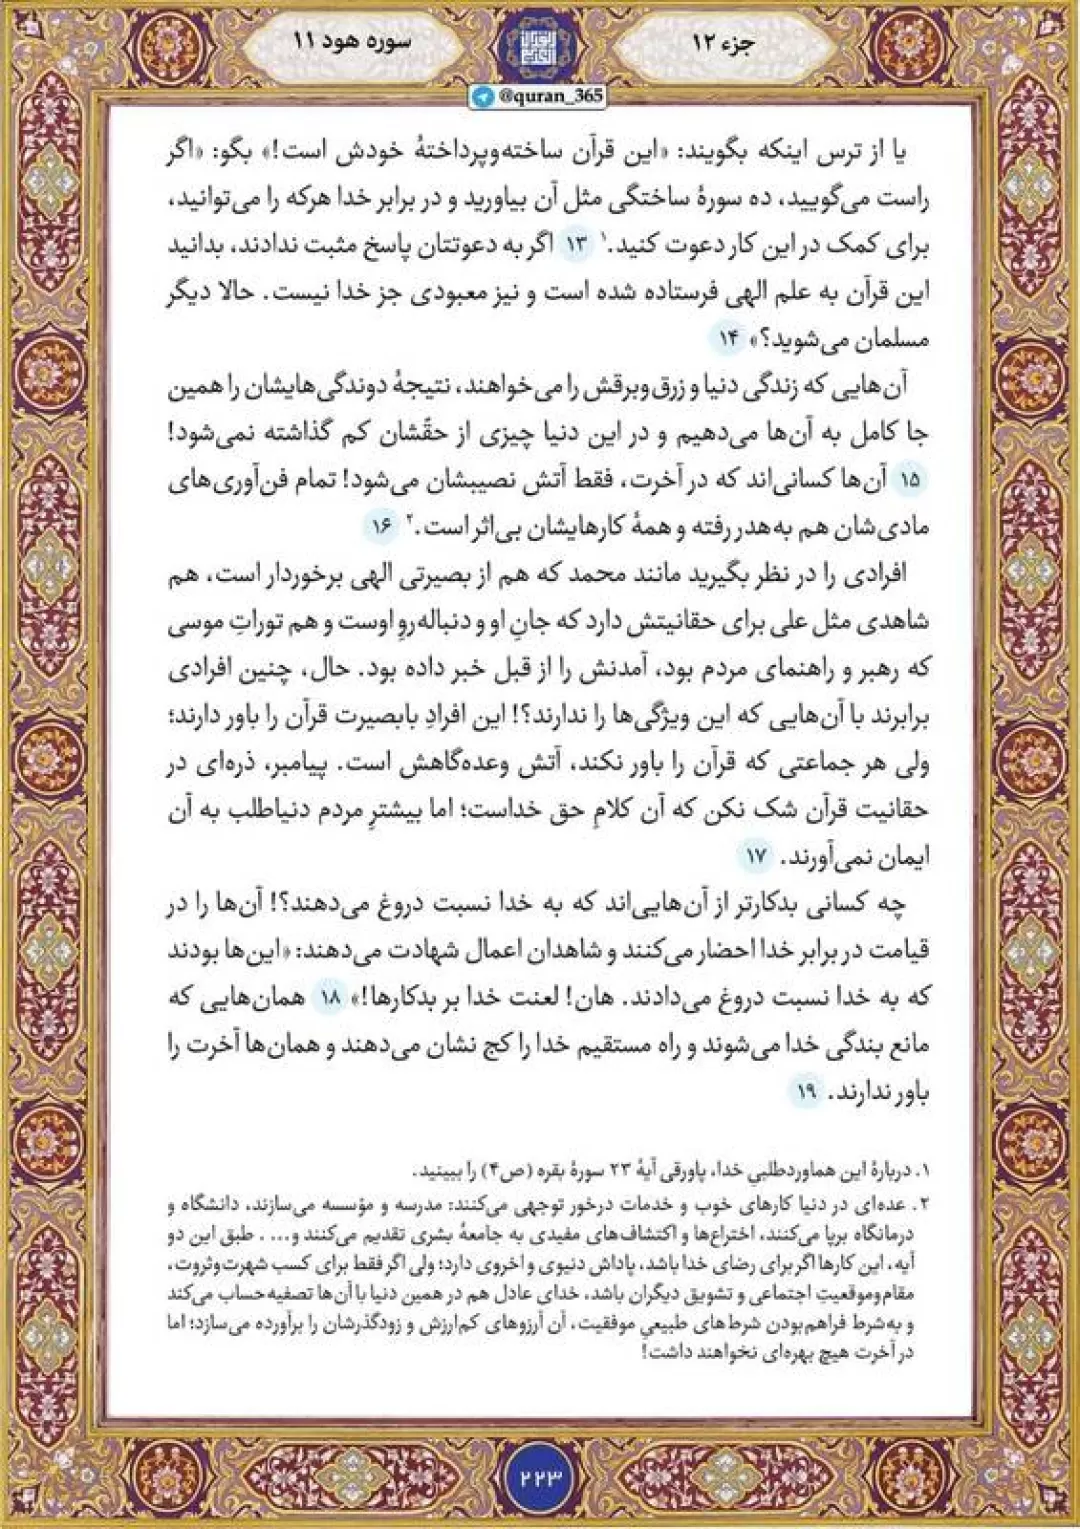 جزء ۱۲
سوره هود ۱۱
@quran_365
یا از ترس اینکه بگویند: «این قرآن ساخته‌وپرداختهٔ خودش است!» بگو: «اگر
راست می‌گویید، ده سورهٔ ساختگی مثل آن بیاورید و در برابر خدا هرکه را می‌توانید،
برای کمک در این کار دعوت کنید.۱ ۱۳ اگر به دعوتتان پاسخ مثبت ندادند، بدانید
این قرآن به علم الهی فرستاده شده است و نیز معبودی جز خدا نیست. حالا دیگر
مسلمان می‌شوید؟» ۱۴
آن‌هایی که زندگی دنیا و زرق‌وبرقش را می‌خواهند، نتیجهٔ دوندگی‌هایشان را همین
جا کامل به آن‌ها می‌دهیم و در این دنیا چیزی از حقّشان کم گذاشته نمی‌شود!
۱۵ آن‌ها کسانی‌اند که در آخرت، فقط آتش نصیبشان می‌شود! تمام فن‌آوری‌های
مادی‌شان هم به‌هدر رفته و همهٔ کارهایشان بی‌اثر است.۲ ۱۶
افرادی را در نظر بگیرید مانند محمد که هم از بصیرتی الهی برخوردار است، هم
شاهدی مثل علی برای حقانیتش دارد که جانِ او و دنباله‌روِ اوست و هم توراتِ موسی
که رهبر و راهنمای مردم بود، آمدنش را از قبل خبر داده بود. حال، چنین افرادی
برابرند با آن‌هایی که این ویژگی‌ها را ندارند؟! این افرادِ بابصیرت قرآن را باور دارند؛
ولی هر جماعتی که قرآن را باور نکند، آتش وعده‌گاهش است. پیامبر، ذره‌ای در
حقانیت قرآن شک نکن که آن کلامِ حق خداست؛ اما بیشترِ مردم دنیاطلب به آن
ایمان نمی‌آورند. ۱۷
چه کسانی بدکارتر از آن‌هایی‌اند که به خدا نسبت دروغ می‌دهند؟! آن‌ها را در
قیامت در برابر خدا احضار می‌کنند و شاهدان اعمال شهادت می‌دهند: «این‌ها بودند
که به خدا نسبت دروغ می‌دادند. هان! لعنت خدا بر بدکارها!» ۱۸ همان‌هایی که
مانع بندگی خدا می‌شوند و راه مستقیم خدا را کج نشان می‌دهند و همان‌ها آخرت را
باور ندارند. ۱۹
۱. دربارهٔ این هماوردطلبیِ خدا، پاورقی آیهٔ ۲۳ سورهٔ بقره (ص۴) را ببینید.
۲. عده‌ای در دنیا کارهای خوب و خدمات درخور توجهی می‌کنند: مدرسه و مؤسسه می‌سازند، دانشگاه و
درمانگاه برپا می‌کنند، اختراع‌ها و اکتشاف‌های مفیدی به جامعهٔ بشری تقدیم می‌کنند و... . طبق این دو
آیه، این کارها اگر برای رضای خدا باشد، پاداش دنیوی و اخروی دارد؛ ولی اگر فقط برای کسب شهرت‌وثروت،
مقام‌وموقعیتِ اجتماعی و تشویق دیگران باشد، خدای عادل هم در همین دنیا با آن‌ها تصفیه‌حساب می‌کند
و به‌شرط فراهم‌بودن شرط‌های طبیعیِ موفقیت، آن آرزوهای کم‌ارزش و زودگذرشان را برآورده می‌سازد؛ اما
در آخرت هیچ بهره‌ای نخواهند داشت!
۲۲۳